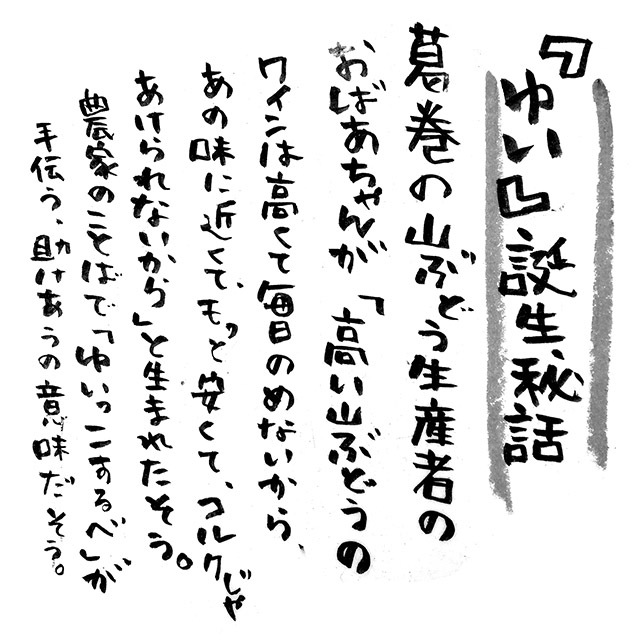 『ゆい』誕生秘話
葛巻の山ぶどう生産者の
おばあちゃんが「高い山ぶどうの
ワインは高くて毎日のめないから、
あの味に近くて、もっと安くて、コルクじゃ
あけられないから」と生まれたそう。
農家のことばで「ゆいっこするべ」が
手伝う、助けあうの意味だそう。